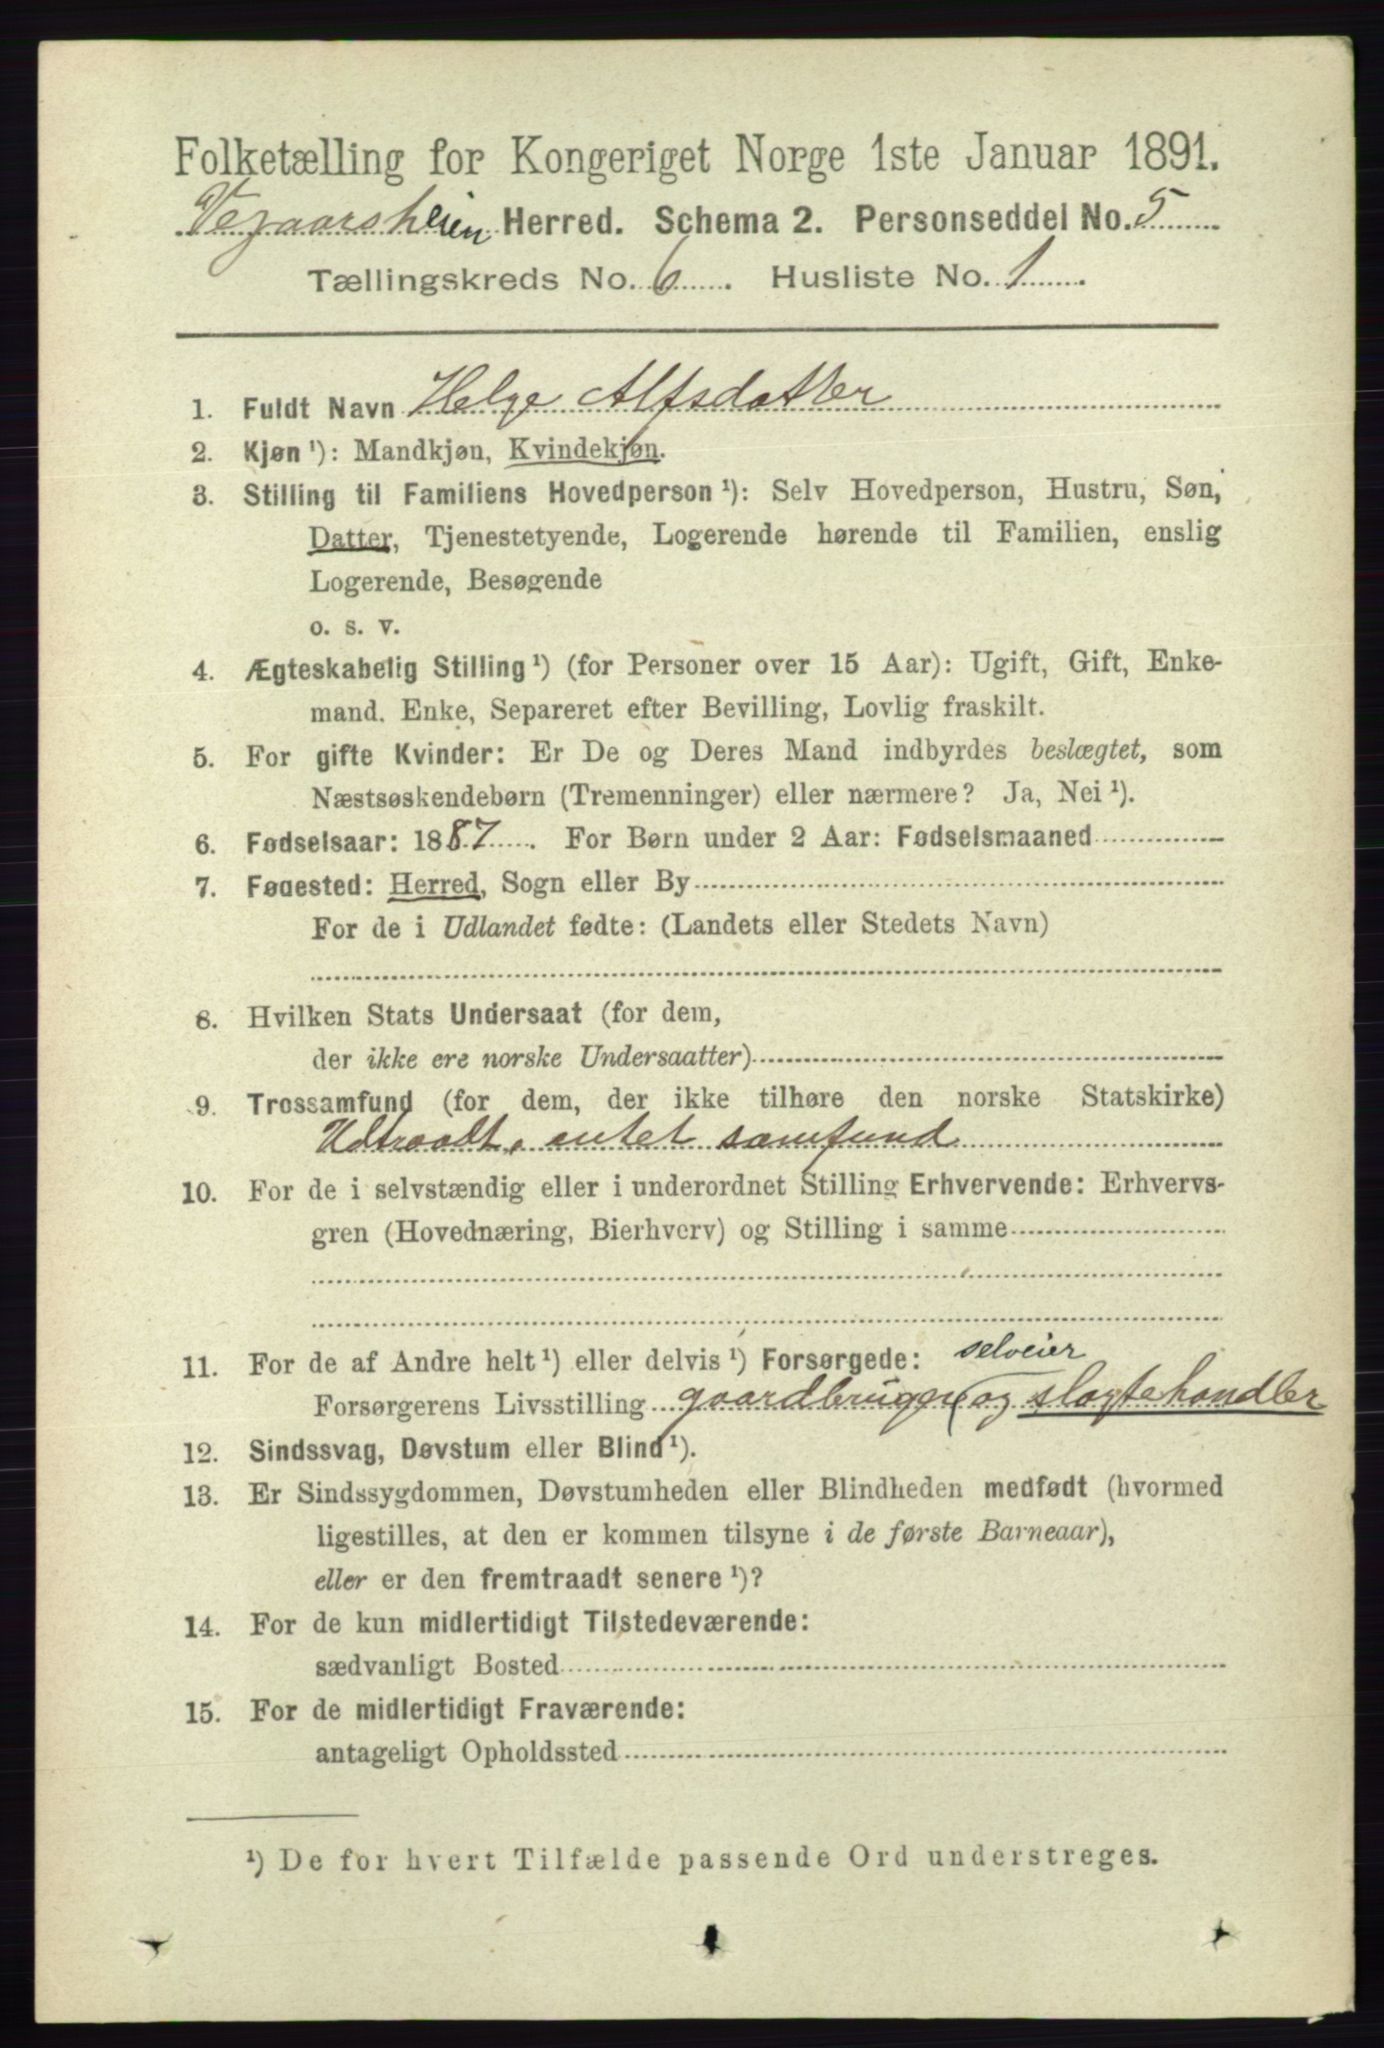 Folketælling for Kongeriget Norge 1ste Januar 1891.
Vegaarsheien Herred. Schema 2. Personseddel No. 5
Tællingskreds No. 6. Husliste No. 1.
1. Fuldt Navn Helge Alfsdatter
2. Kjøn ¹): Mandkjøn, Kvindekjøn.
3. Stilling til Familiens Hovedperson ¹): Selv Hovedperson, Hustru, Søn,
Datter, Tjenestetyende, Logerende hørende til Familien, enslig
Logerende, Besøgende
o. s. v.
4. Ægteskabelig Stilling ¹) (for Personer over 15 Aar): Ugift, Gift, Enke-
mand. Enke, Separeret efter Bevilling, Lovlig fraskilt.
5. For gifte Kvinder: Er De og Deres Mand indbyrdes beslægtet, som
Næstsøskendebørn (Tremenninger) eller nærmere? Ja, Nei ¹).
6. Fødselsaar: 1887. For Børn under 2 Aar: Fødselsmaaned
7. Fødested: Herred, Sogn eller By
For de i Udlandet fødte: (Landets eller Stedets Navn)
8. Hvilken Stats Undersaat (for dem,
der ikke ere norske Undersaatter)
9. Trossamfund (for dem, der ikke tilhøre den norske Statskirke)
Udtraadt, intet samfund
10. For de i selvstændig eller i underordnet Stilling Erhvervende: Erhvervs-
gren (Hovednæring, Bierhverv) og Stilling i samme
11. For de af Andre helt ¹) eller delvis ¹) Forsørgede: selveier
Forsørgerens Livsstilling gaardbruger og slagtehandler
12. Sindssvag, Døvstum eller Blind ¹).
13. Er Sindssygdommen, Døvstumheden eller Blindheden medfødt (hvormed
ligestilles, at den er kommen tilsyne i de første Barneaar),
eller er den fremtraadt senere ¹)?
14. For de kun midlertidigt Tilstedeværende:
sædvanligt Bosted
15. For de midlertidigt Fraværende:
antageligt Opholdssted
¹) De for hvert Tilfælde passende Ord understreges.